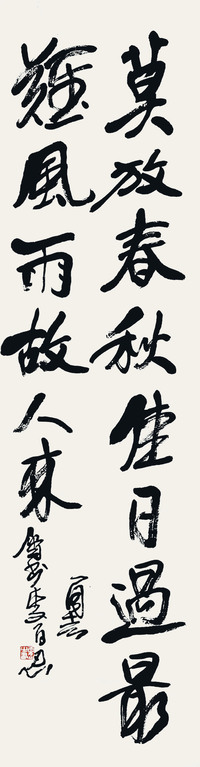 莫放春秋佳日過最
難風雨故人來